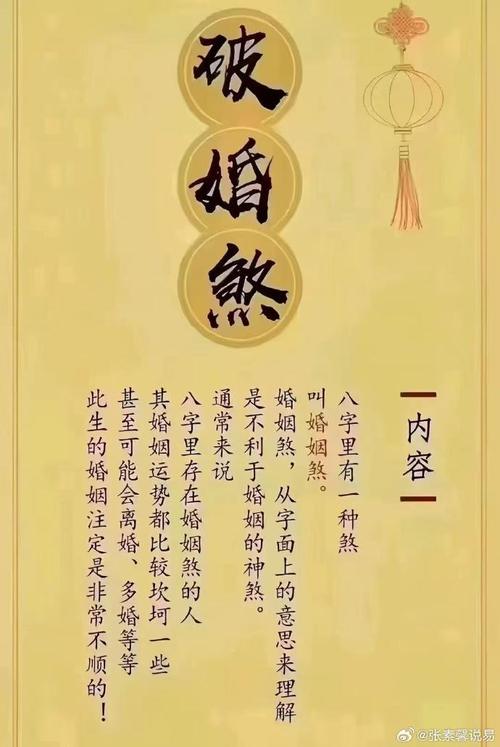 破婚煞
内容
八字里有一种煞
叫婚姻煞。
婚姻煞，从字面上的意思来理解
是不利于婚姻的神煞。
通常来说
八字里存在婚姻煞的人
其婚姻运势都比较坎坷一些
甚至可能会离婚、多婚等等
此生的婚姻注定是非常不顺的！
@张素馨说易